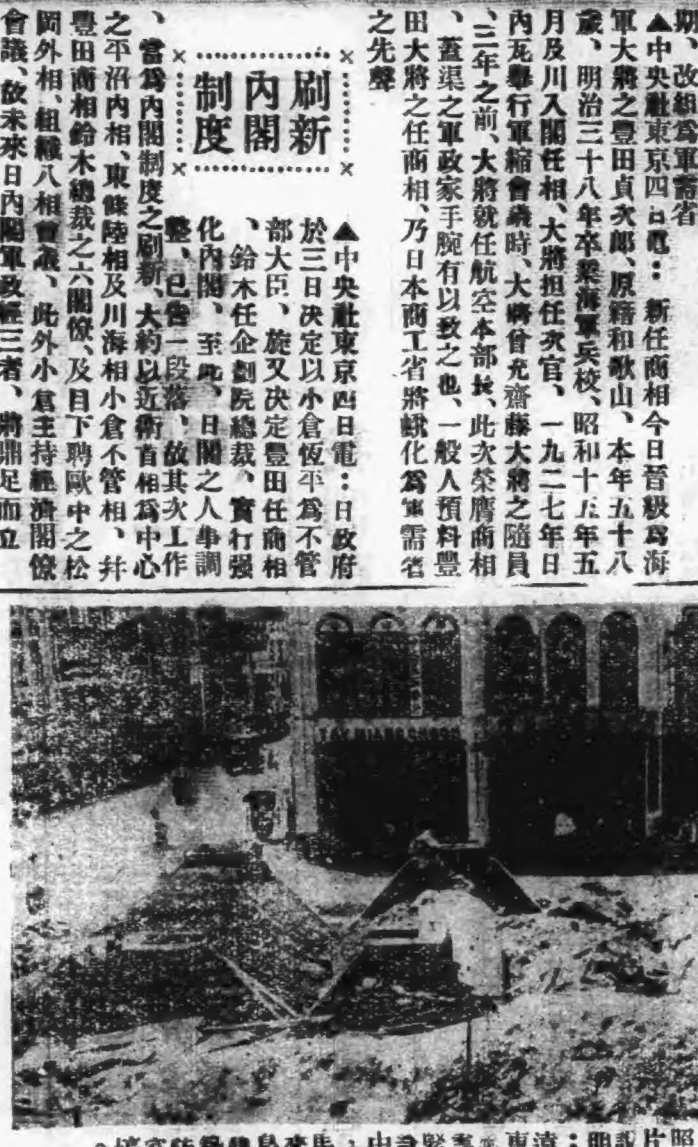 期、改組為軍需省
▲中央社東京四日電：新任商相今日晉級為海
軍大將之豐田貞次郎、原籍和歌山、本年五十八
歲、明治三十八年卒業海軍兵校、昭和十五年五
月及川入閣任相、大將担任次官、一九二七年日
內瓦舉行軍縮會議時、大將曾充齋藤大將之隨員
、三年之前、大將就任航空本部長、此次榮膺商相
、蓋渠之軍政家手腕有以致之也、一般人預料豐
田大將之任商相、乃日本商工省將蛾化為軍需省
之先聲
刷新
內閣
制度
▲中央社東京四日電：日政府
於三日決定以小倉恆平為不管
部大臣、旋又決定豐田任商相
、鈴木任企劃院總裁、實行强
化內閣、至此、日閣之人事調
整、已告一段落、故其次工作
、當為內閣制度之刷新、大約以近衞首相為中心
之平沼內相、東條陸相及川海相小倉不管相、幷
豐田商相鈴木總裁之六閣僚、及目下聘歐中之松
岡外相、組織八相會議、此外小倉主持經濟閣僚
會議、故未來日內閣軍政經三者、將鼎足而立